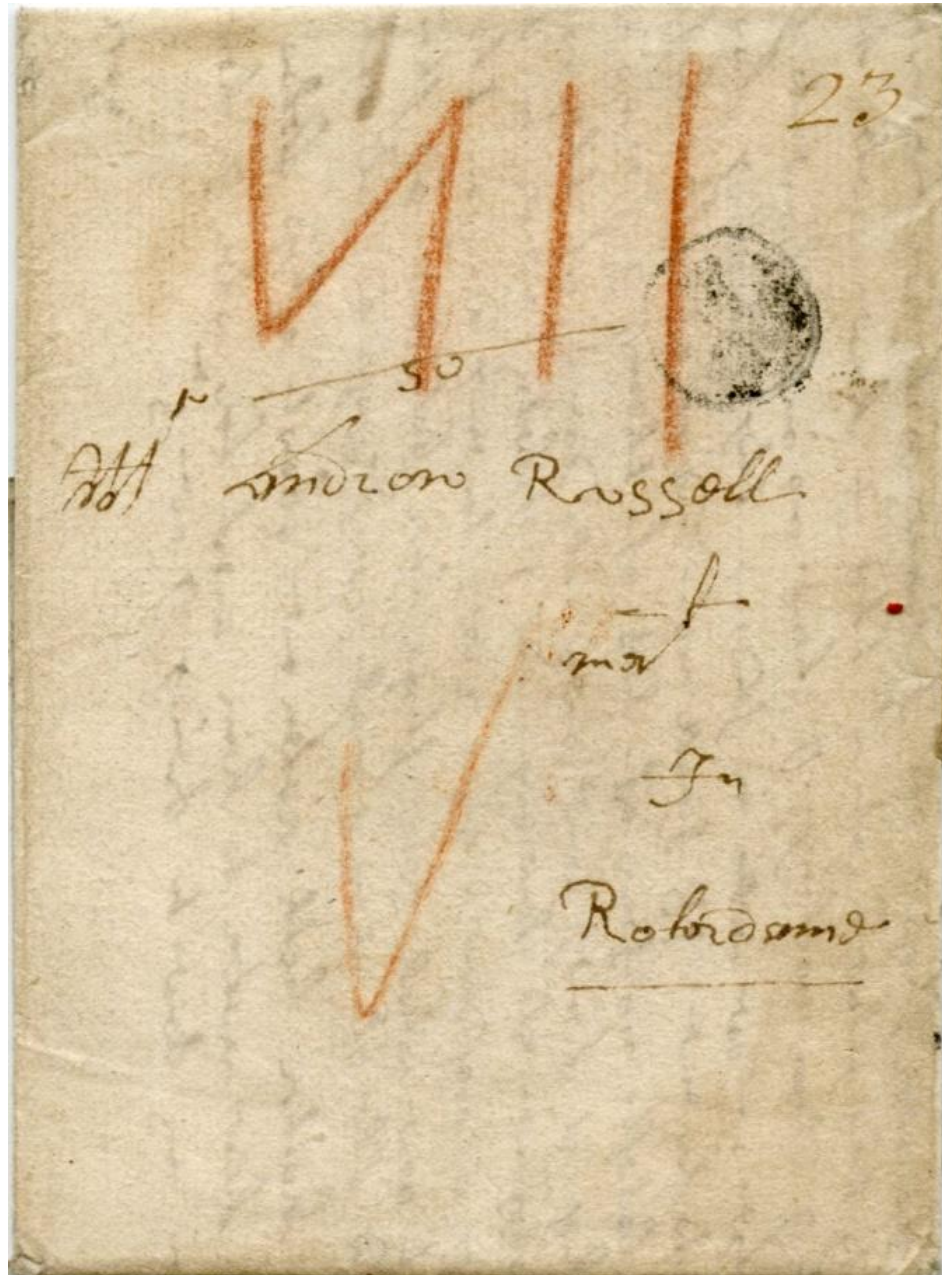 23
VIII
50
Mr Andrew Russell
mert
In
Roterdame